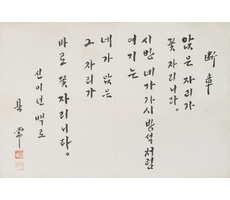 斷章
앉은 자리가
꽃자리니라.
시방 네가 가시방석처럼
여기는
네가 앉은
그 자리가
바로 꽃자리니라.
신미년 백로
具常